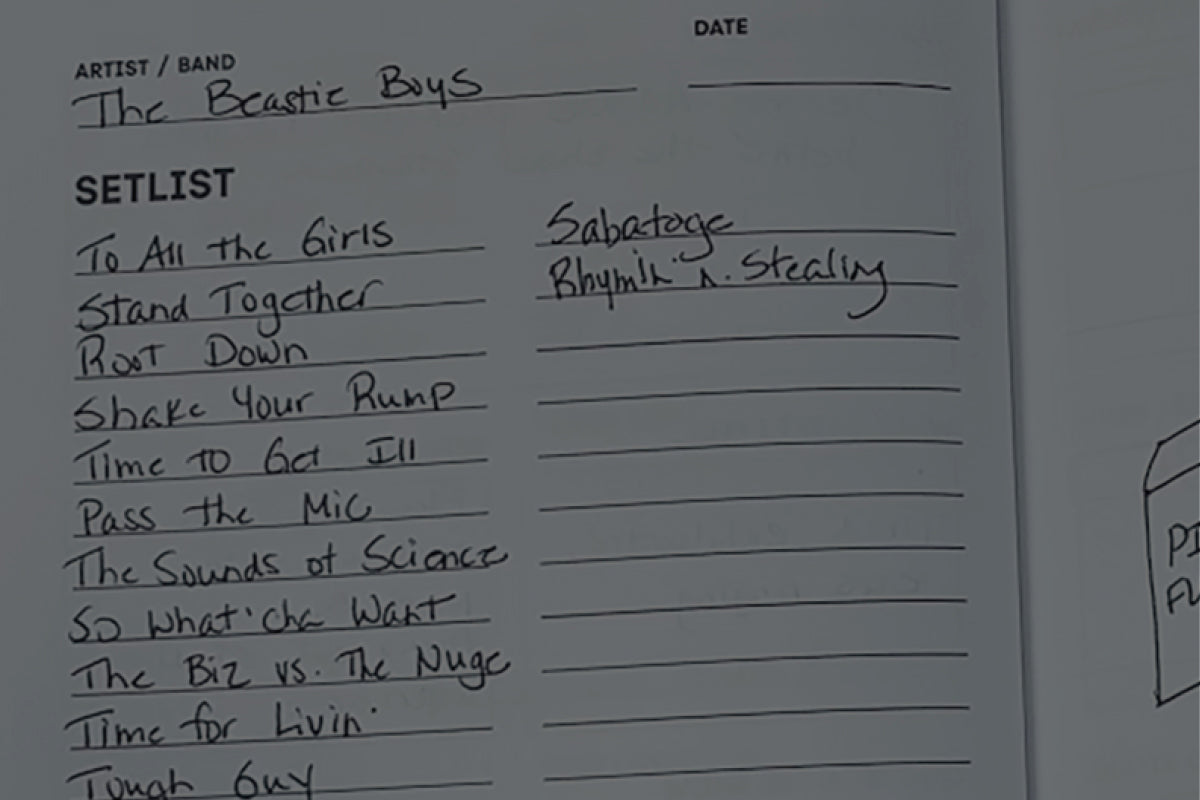 DATE
ARTIST / BAND
The Beastie Boys
SETLIST
To All the Girls
Stand Together
Root Down
Shake Your Rump
Time to Get Ill
Pass the Mic
The Sounds of Science
So What'cha Want
The Biz vs. The Nuge
Time for Livin'
Tough Guy
Sabatoge
Rhymin' n. Stealing
PI
FL